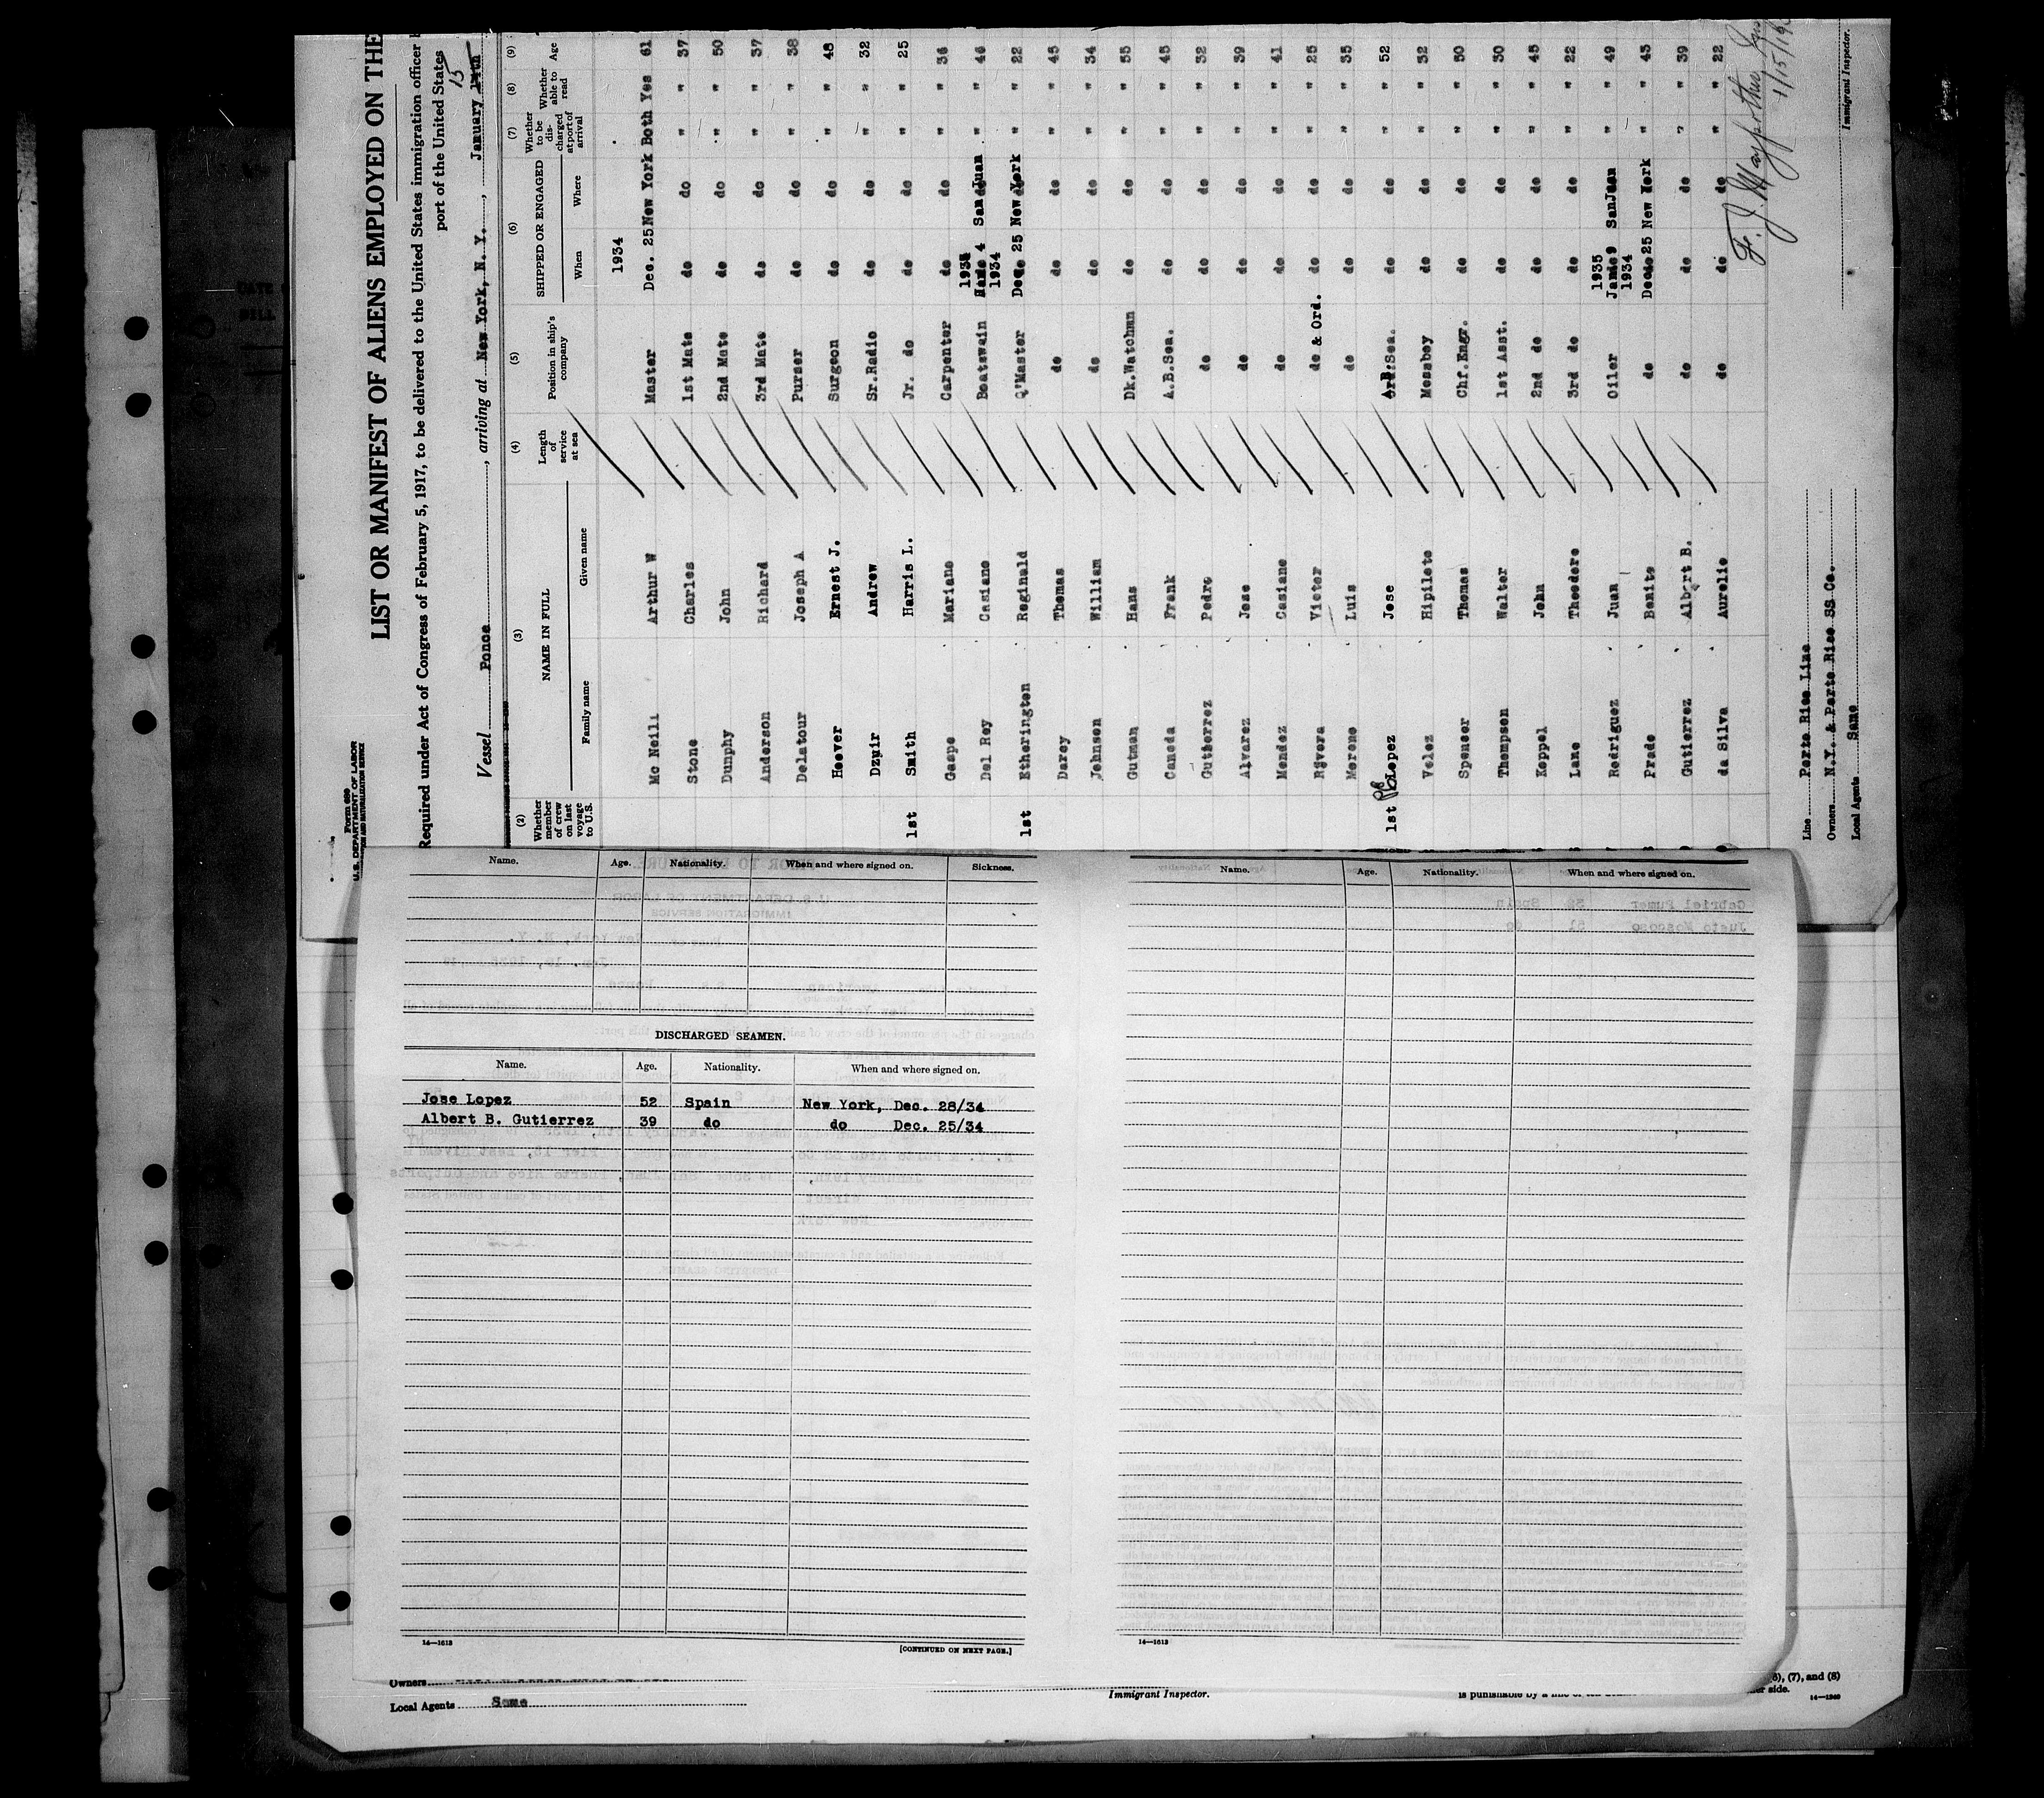 Form 689
U.S. DEPARTMENT OF LABOR
LIST OR MANIFEST OF ALIENS EMPLOYED ON THE
Required under Act of Congress of February 5, 1917, to be delivered to the United States immigration officer
port of the United States
Vessel Ponce, arriving at New York, N. Y., January 14th 15
(2) (3) (4) (5) (6) (7) (8) (9)
Whether member of crew on last voyage to U.S. NAME IN FULL Family name Given name Length of service at sea Position in ship's company SHIPPED OR ENGAGED When Where Whether to be discharged at port of arrival Whether able to read Age
1934
Mc Neill Arthur W Master Dec. 25 New York Both Yes 61
Stone Charles 1st Mate do do " " 37
Dunphy John 2nd Mate do do " " 50
Anderson Richard 3rd Mate do do " " 37
Delatour Joseph A Purser do do " " 38
Hoover Ernest J. Surgeon do do " " 48
Dzuir Andrew Sr.Radio do do " " 32
1st Smith Harris L. Jr. do do do " " 25
Gaspe Mariano Carpenter do do " " 36
1935
Del Rey Casiano Boatswain 4 San Juan " " 46
1934
1st Etherington Reginald Q'Master Dec. 25 New York " " 22
Darcy Thomas do do do " " 45
Johnson William do do do " " 34
Gutman Hans Dk.Watchman do do " " 55
Caneda Frank A.B.Sea. do do " " 45
Gutierrez Pedro do do do " " 32
Alvarez Jose do do do " " 39
Mendez Casiano do do do " " 41
Rivera Victor do & Ord. do do " " 25
Moreno Luis do do do " " 35
1st Lopez Jose A.B.Sea. do do " " 52
Velez Hipileto Messboy do do " " 32
Spencer Thomas Chf.Engr. do do " " 50
Thompson Walter 1st Asst. do do " " 30
Koppel John 2nd do do do " " 45
Lane Theodore 3rd do do do " " 22
1935
Rodriguez Juan Oiler Jan 9 San Juan " " 49
1934
Prado Benito do Dec 25 New York " " 43
Gutierrez Albert B. do do do " " 39
da Silva Aurelio do do do " " 22
Line Porto Rico Line
Owners N.Y. & Porto Rico SS Co.
Local Agents Same
1/15/19
Immigrant Inspector.
Name. Age. Nationality. When and where signed on. Sickness.
DISCHARGED SEAMEN.
Name. Age. Nationality. When and where signed on.
Jose Lopez 52 Spain New York, Dec. 28/34
Albert B. Gutierrez 39 do do Dec. 25/34
14—1613
[CONTINUED ON NEXT PAGE.]
Name. Age. Nationality. When and where signed on.
14—1613
Owners
Local Agents Same
Immigrant Inspector.
(7), and (8)
is punishable by a fine of
side.
14—1240